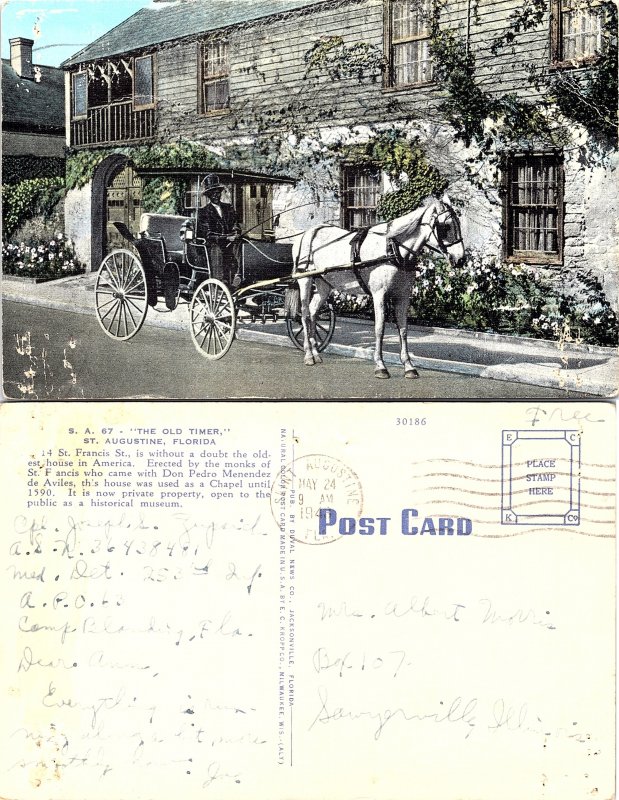 30186
Free
S. A. 67 - "THE OLD TIMER,"
ST. AUGUSTINE, FLORIDA
14 St. Francis St., is without a doubt the old-
est house in America. Erected by the monks of
St. F ancis who came with Don Pedro Menendez
de Aviles, th's house was used as a Chapel until
1590. It is now private property, open to the
public as a historical museum.
Joseph S.
A.S.N. 36438401
Med. Det. 253rd Inf.
A.P.O. 63
Camp Blanding, Fla.
Dear Ann,
Everything is run-
ning along a bit more
smoothly now. Joe
PUB. BY DUVAL NEWS CO., JACKSONVILLE, FLORIDA
NATURAL COLOR POST CARD MADE IN U.S.A. BY E. C. KROPP CO., MILWAUKEE, WIS. (ALY)
ST. AUGUSTINE
MAY 24
9 AM
FLA.
POST CARD
E C
PLACE
STAMP
HERE
K Co
Mrs. Albert Morris
Box 107
Sawyerville, Illinois